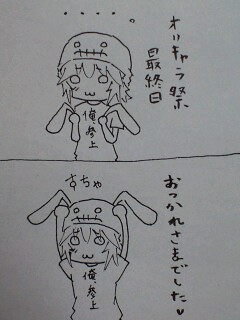 オリキャラ祭
最終日
・・・・。
俺、参上
おつかれさまでした♥
すちゃ
俺、参上